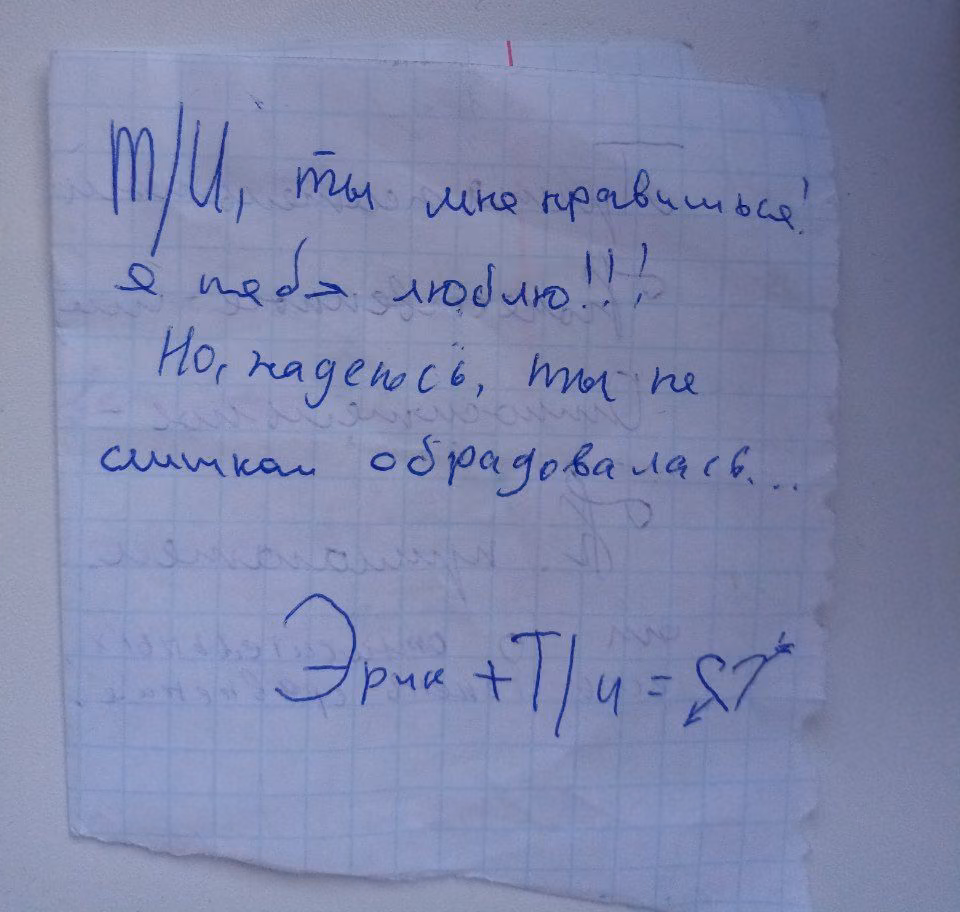 Т/И, ты мне нравишься!
я тебя люблю!!!
Но, надеюсь, ты не
слишком обрадовалась...
Эрик + Т/и =